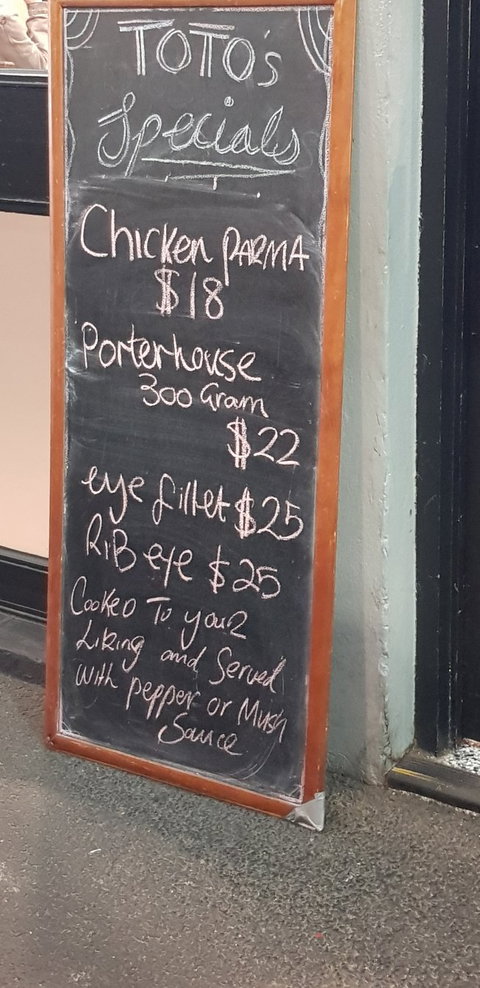 TOTO's
Specials
Chicken PARMA
$18
Porterhouse
300 Gram
$22
eye fillet $25
RiB eye $25
Cooked To your
Liking and Served
with pepper or Mush
Sauce